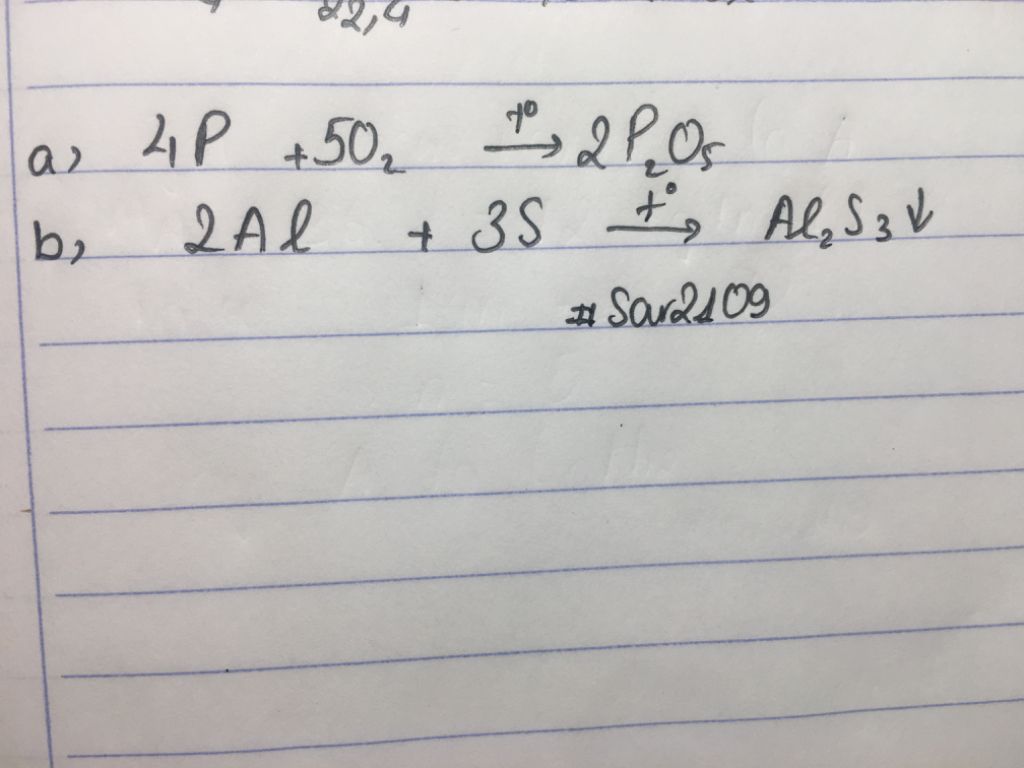 22,4
a, 4P + 5O₂ —t°→ 2P₂O₅
b, 2Al + 3S —t°→ Al₂S₃↓
#Sar2109